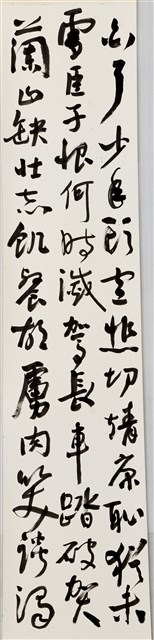 白了少年頭空悲切靖康恥猶未
雪臣子恨何時滅駕長車踏破賀
蘭山缺壯志飢餐胡虜肉笑談渴